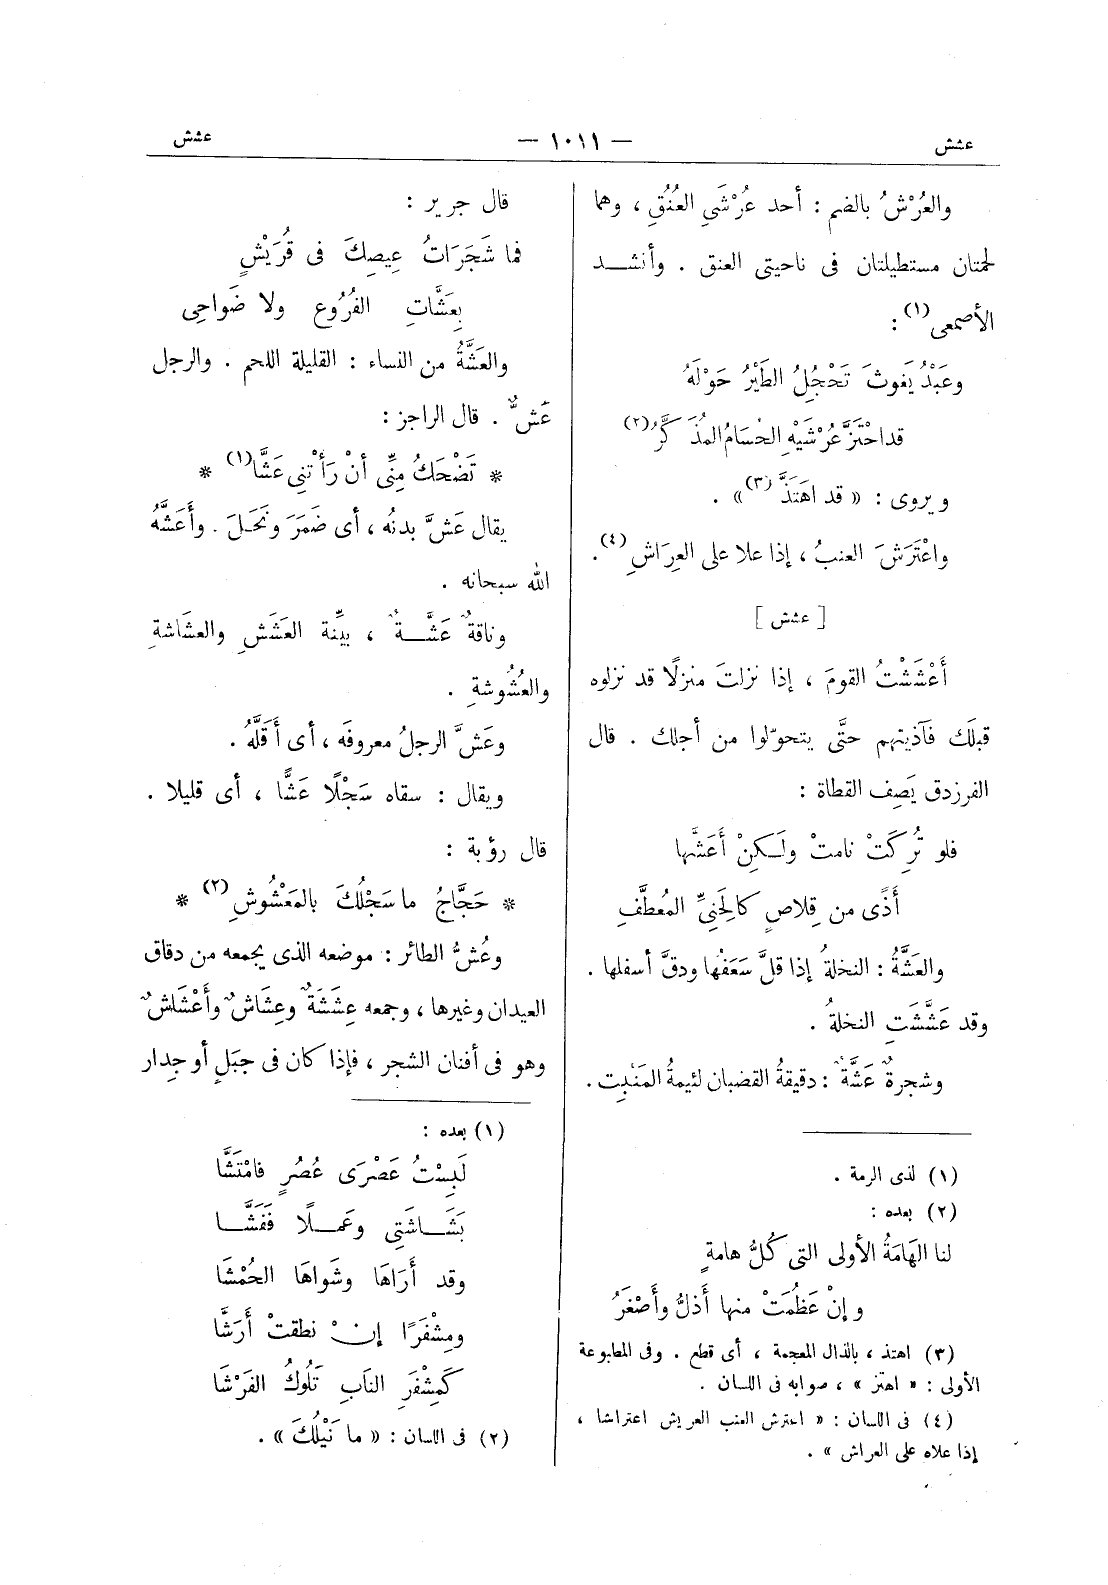 عشش
— ١٠١١ —
عشش
والعُرْشُ بالضم : أحد عُرْشَىِ العُنُقِ ، وهما
لحمتان مستطيلتان فى ناحيتى العنق . وأنشد
الأصمعى(١) :
وعَبْدُ يَغوثَ تَحْجُلُ الطَيْرُ حَوْلَهُ
قد احْتَزَّ عُرْشَيْهِ الحُسَامُ المُذَكَّرُ(٢)
ويروى : « قد اهْتَذَّ(٣) » .
واعْتَرَشَ العنبُ ، إذا علا على العِرَاشِ(٤) .
[ عشش ]
أَعْشَشْتُ القومَ ، إذا نزلتَ منزلًا قد نزلوه
قبلَك فآذيتهم حتَّى يتحوّلوا من أجلك . قال
الفرزدق يَصِف القطاة :
فلو تُرِكَتْ نامتْ ولَكِنْ أَعَشَّها
أَذًى من قِلاصٍ كالحَنِىِّ المُعطَّفِ
والعَشَّةُ : النخلةُ إذا قلَّ سَعَفُها ودقَّ أسفلها .
وقد عَشَّشَتِ النخلةُ .
وشجرةٌ عَشَّةٌ : دقيقةُ القضبان لئيمةُ المَنْبِت .
(١) لذى الرمة .
(٢) بعده :
لنا الهَامَةُ الأولى التى كُلُّ هامةٍ
وإنْ عَظُمَتْ منها أَذلُّ وأَصْغَرُ
(٣) اهتذ ، بالذال المعجمة ، أى قطع . وفى المطبوعة
الأولى : « اهتز » ، صوابه فى اللسان .
(٤) فى اللسان : « اعترش العنب العريش اعتراشا ،
إذا علاه على العراش » .
قال جرير :
فما شَجَرَاتُ عِيصِكَ فى قُرَيْشٍ
بِعَشَّاتِ الفُرُوعِ ولا ضَواحِى
والعَشَّةُ من النساء : القليلة اللحم . والرجل
عَشٌّ . قال الراجز :
* تَضْحَكُ مِنِّى أنْ رَأَتْنِى عَشَّا(١) *
يقال عَشَّ بدنُه ، أى ضَمَرَ ونَحَلَ . وأَعَشَّهُ
الله سبحانه .
وناقةٌ عَشَّةٌ ، بيِّنة العَشَشِ والعشَاشةِ
والعُشُوشةِ .
وعَشَّ الرجلُ معروفَه ، أى أَقَلَّهُ .
ويقال : سقاه سَجْلًا عَشًّا ، أى قليلا .
قال رؤبة :
* حَجَّاجُ ما سَجْلُكَ بالمَعْشُوشِ(٢) *
وعُشُّ الطائر : موضعه الذى يجمعه من دقاق
العيدان وغيرها ، وجمعه عِشَشَةٌ وعِشَاشٌ وأَعْشَاشٌ
وهو فى أفنان الشجر ، فإذا كان فى جبَلٍ أو جِدار
(١) بعده :
لَبِسْتُ عَصْرَى عُصُرٍ فامْتَشَّا
بَشَاشَتِى وعَمَلًا فَفَشَّا
وقد أَرَاهَا وشَواهَا الحُمْشَا
ومِشْفَرًا إنْ نطقتْ أَرَشَّا
كَمِشْفَرِ النابِ تَلُوكُ الفَرْشَا
(٢) فى اللسان : « ما نَيْلُكَ » .